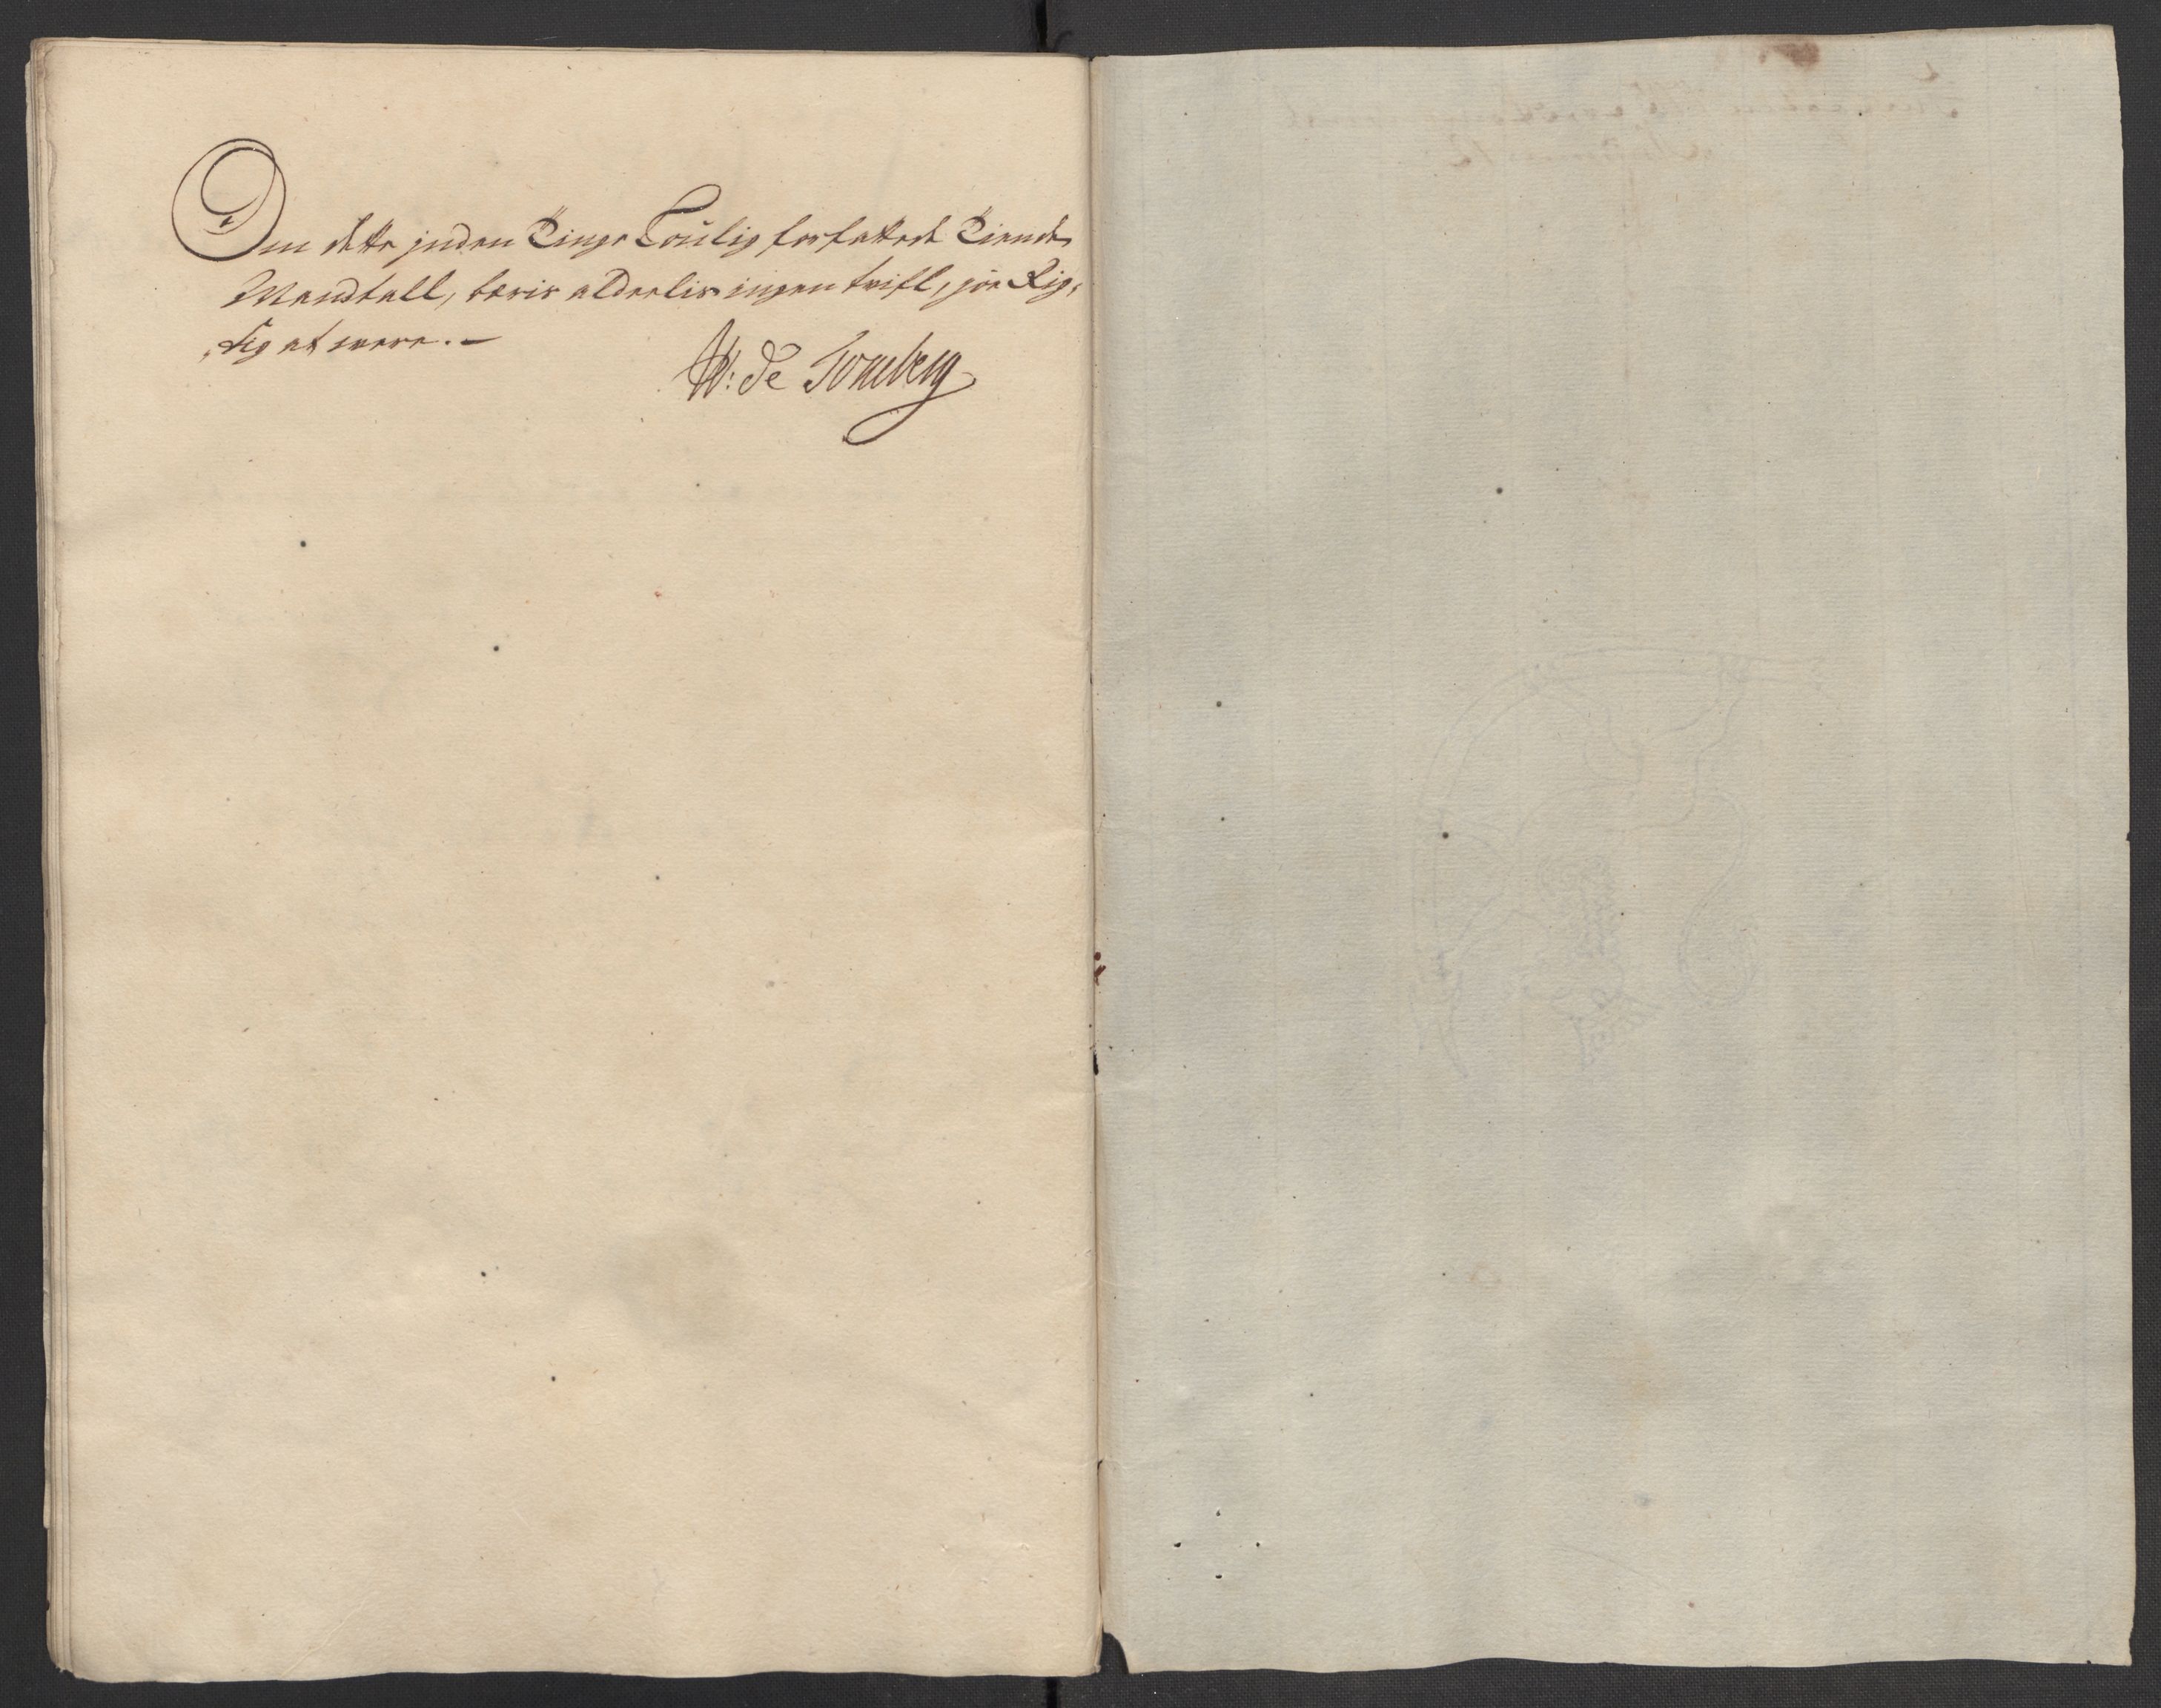 Om dette inden Tinge Loulig forfattede Tiende
Mandtall, bæris alderlis ingen twifl, jöe Rig,
„tig at wære. –
W: de Tornberg